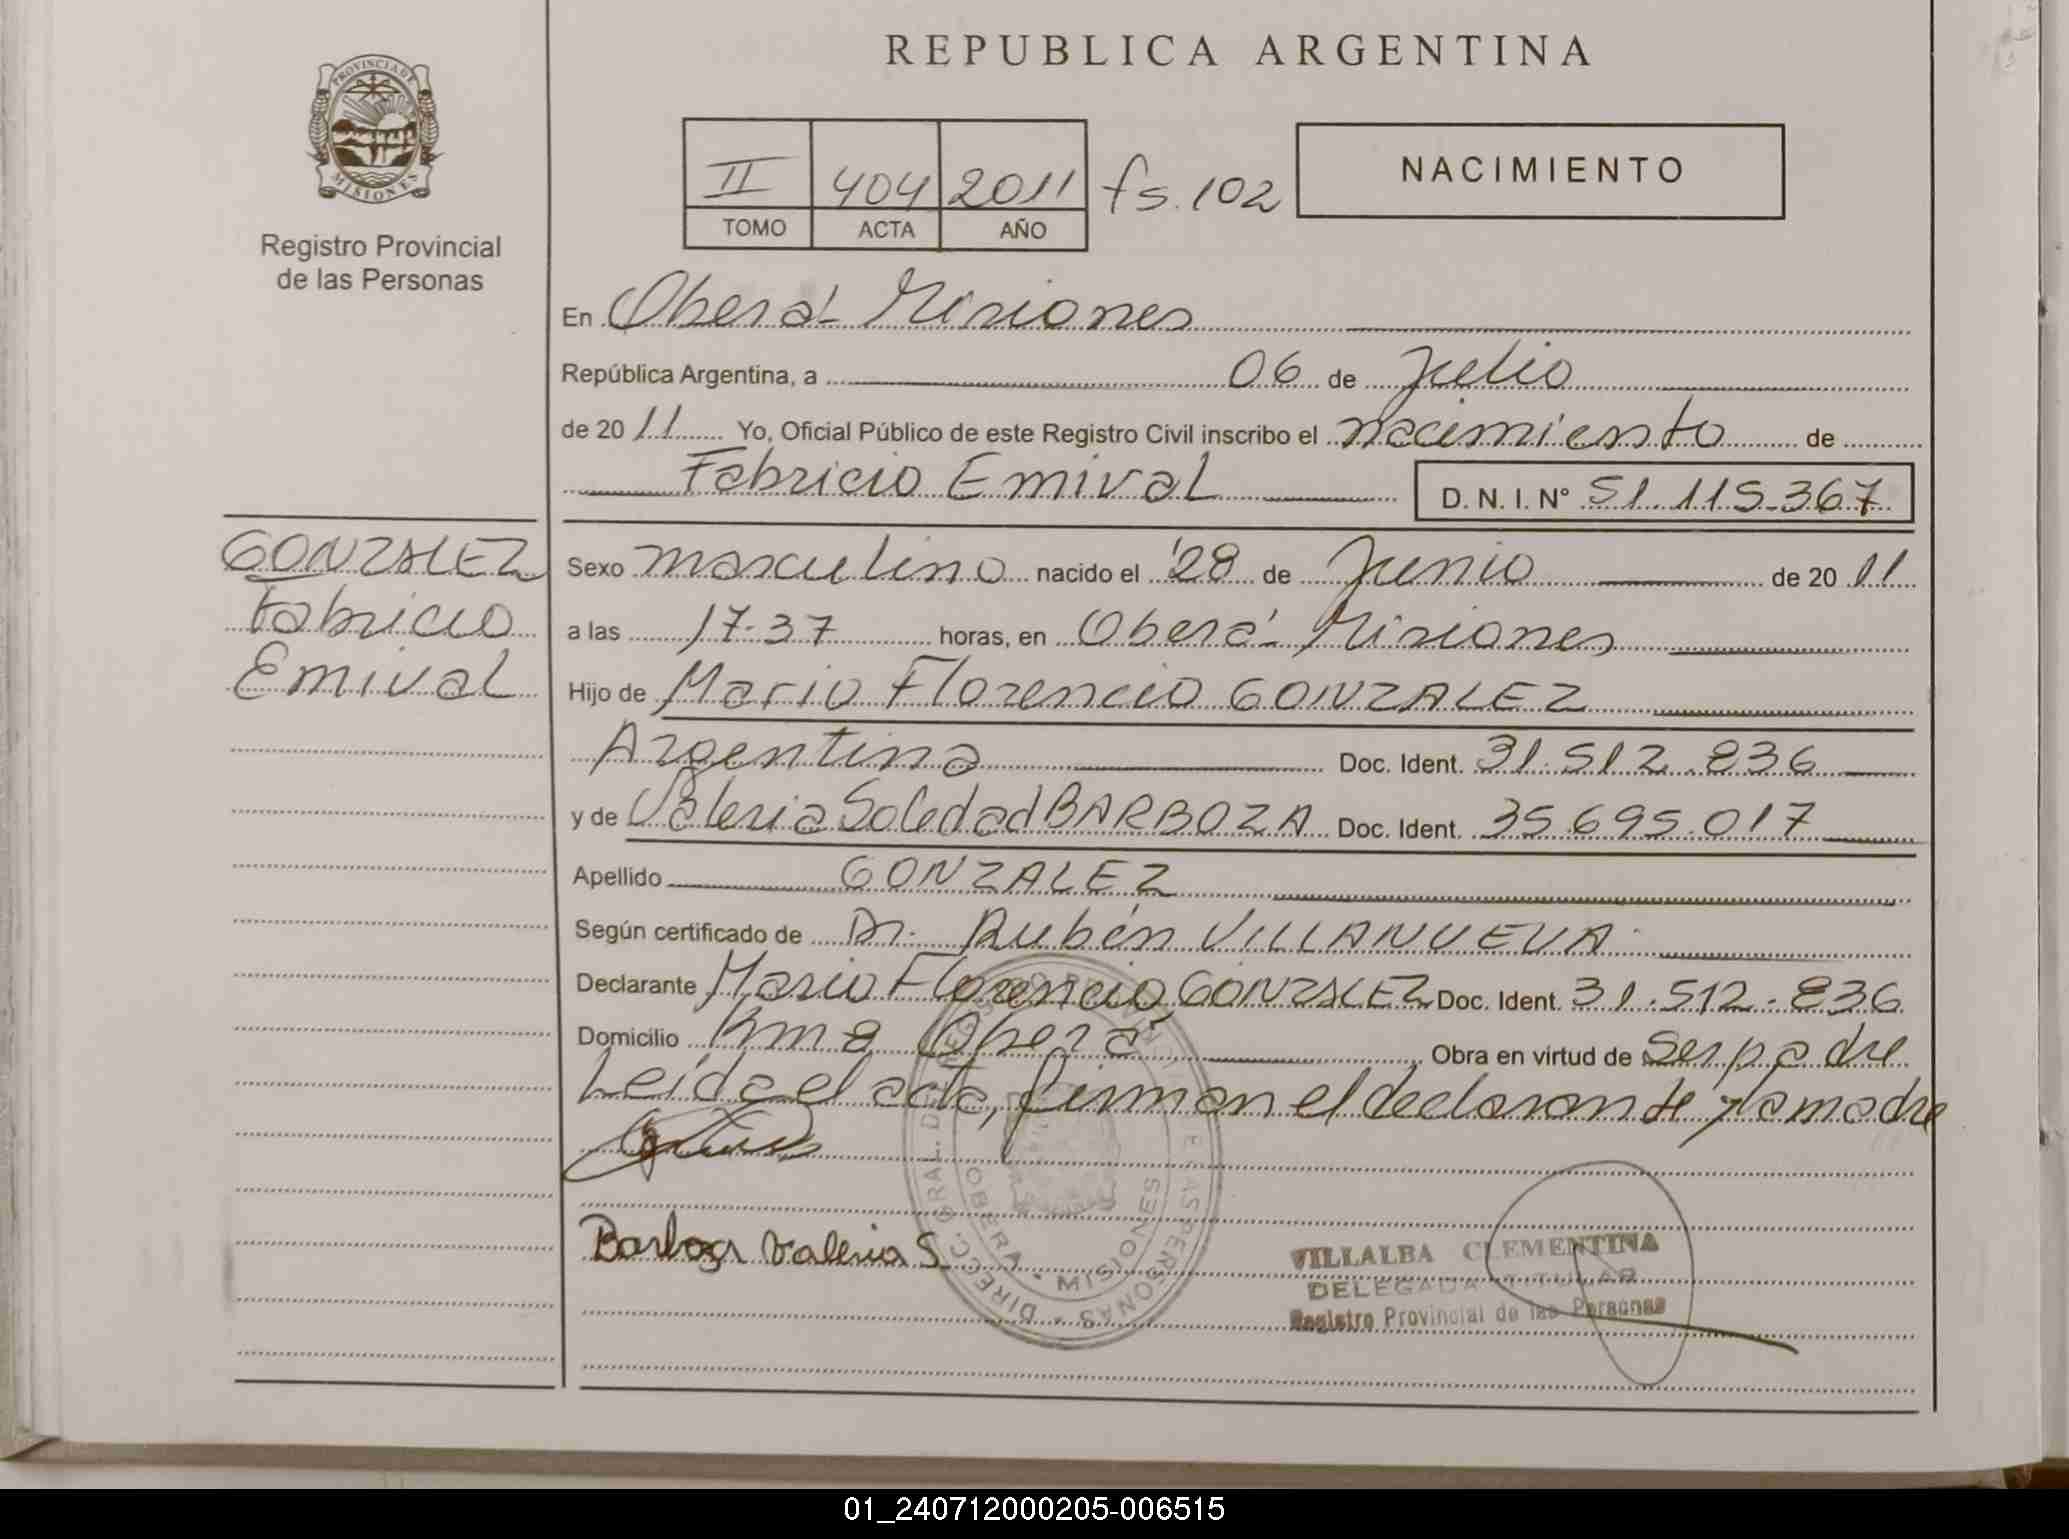 REPUBLICA ARGENTINA
PROVINCIA DE MISIONES
Registro Provincial
de las Personas
II 404 2011 fs. 102
TOMO ACTA AÑO
NACIMIENTO
En Oberá - Misiones
República Argentina, a 06 de Julio
de 20 11 Yo, Oficial Público de este Registro Civil inscribo el nacimiento de
Fabricio Emival D. N. I. N° 51.115.367
GONZALEZ
Fabricio
Emival
Sexo masculino nacido el 28 de Junio de 20 11
a las 17.37 horas, en Oberá - Misiones
Hijo de Mario Florencio GONZALEZ
Argentina Doc. Ident. 31.512.836
y de Valeria Soledad BARBOZA Doc. Ident. 35.695.017
Apellido GONZALEZ
Según certificado de Dr. Rubén VILLANUEVA
Declarante Mario Florencio GONZALEZ Doc. Ident. 31.512.836
Domicilio Km 8 Oberá Obra en virtud de Ser padre
Leída el acta, firman el declarante y la madre
Barboza Valeria S.
DIRECC. GRAL. DEL REGISTRO PROVINCIAL DE LAS PERSONAS
OBERA • MISIONES
VILLALBA CLEMENTINA
DELEGADA TITULAR
Registro Provincial de las Personas
01_240712000205-006515